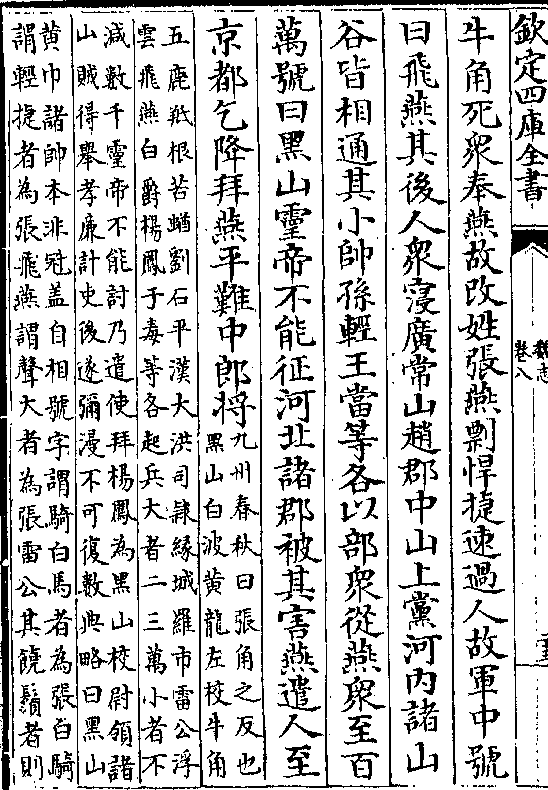 欽定四庫全書
魏志
卷八
牛角死衆奉燕故改姓張燕剽悍捷速過人故軍中號
曰飛燕其後人衆寖廣常山趙郡中山上黨河内諸山
谷皆相通其小帥孫輕王當等各以部衆從燕衆至百
萬號曰黑山靈帝不能征河北諸郡被其害燕遣人至
京都乞降拜燕平難中郎將
九州春秋曰張角之反也
黑山白波黄龍左校牛角
五鹿羝根苦蝤劉石平漢大洪司隷緣城羅市雷公浮
雲飛燕白爵楊鳳于毒等各起兵大者二三萬小者不
減數千靈帝不能討乃遣使拜楊鳳為黑山校尉領諸
山賊得舉孝廉計吏後遂彌漫不可復數典略曰黑山
黄巾諸帥本非冠盖自相號字謂騎白馬者為張白騎
謂輕捷者為張飛燕謂聲大者為張雷公其饒鬚者則